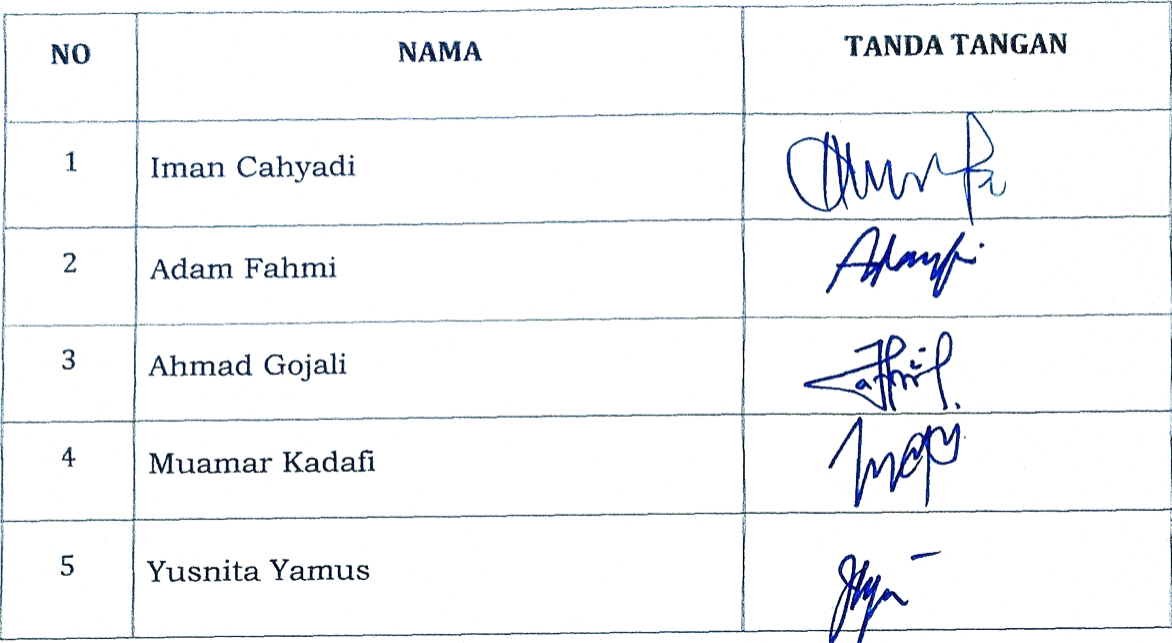 NO NAMA TANDA TANGAN
1 Iman Cahyadi
2 Adam Fahmi
3 Ahmad Gojali
4 Muamar Kadafi
5 Yusnita Yamus